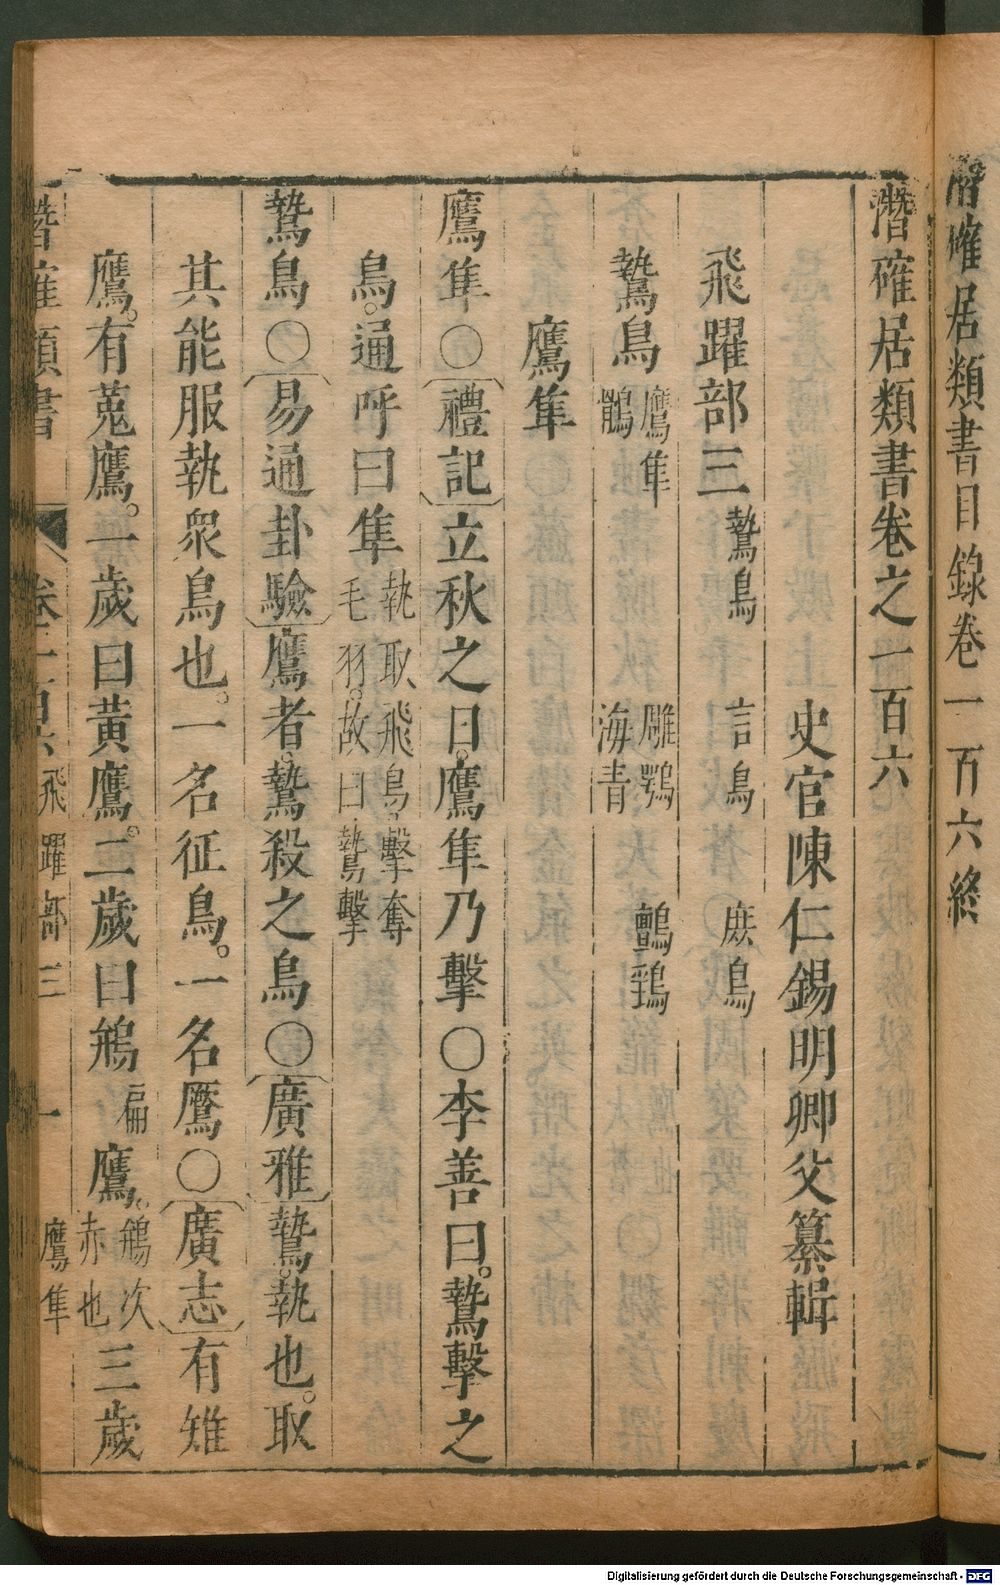 潛確居類書目錄卷一百六終
潛確居類書卷之一百六
史官陳仁錫明卿父纂輯
飛躍部三 鷙鳥 言鳥 庶鳥
鷙鳥 鷹隼 鶻 雕鶚 海青 鸇鵄
鷹隼
鷹隼〇〔禮記〕立秋之日。鷹隼乃擊〇李善曰。鷙擊之
鳥。通呼曰隼 執取飛鳥。擊奪毛羽。故曰鷙擊
鷙鳥〇〔易通卦驗〕鷹者。鷙殺之鳥〇〔廣雅〕鷙。執也。取
其能服執衆鳥也。一名征鳥。一名鷹〇〔廣志〕有雉
鷹。有菟鷹。一歲曰黃鷹。二歲曰鶬扁鷹。鶬次赤也三歲
潛確類書 卷一百六 飛躍部三 一 鷹隼
Digitalisierung gefördert durch die Deutsche Forschungsgemeinschaft - DFG